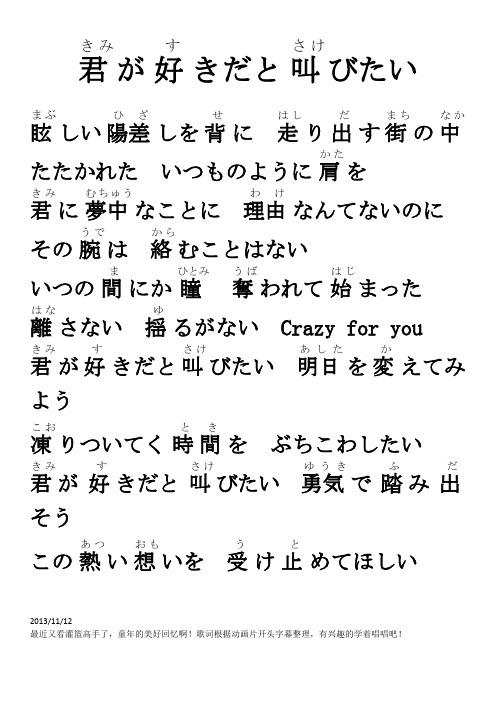 きみ す さけ
君が好きだと叫びたい
まぶ ひ ざ せ はし だ まち なか
眩しい陽差しを背に　走り出す街の中
かた
たたかれた　いつものように肩を
きみ むちゅう わ け
君に夢中なことに　理由なんてないのに
うで から
その腕は　絡むことはない
ま ひとみ うば はじ
いつの間にか瞳　奪われて始まった
はな ゆ
離さない　揺るがない　Crazy for you
きみ す さけ あした か
君が好きだと叫びたい　明日を変えてみ
よう
こお とき
凍りついてく時間を　ぶちこわしたい
きみ す さけ ゆうき ふ だ
君が好きだと叫びたい　勇気で踏み出
そう
あつ おも う と
この熱い想いを　受け止めてほしい
2013/11/12
最近又看灌篮高手了，童年的美好回忆啊！歌词根据动画片开头字幕整理，有兴趣的学着唱唱吧！